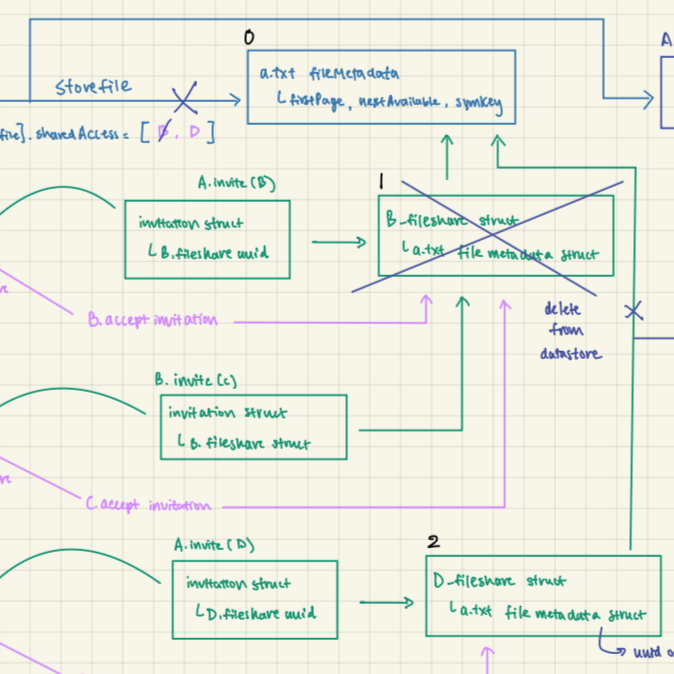 0
A
Storefile
a.txt fileMetadata
firstPage, nextAvailable, symkey
file].sharedAccess = [ B, D ]
A.invite(B)
1
invitation struct
B.fileshare uuid
B-fileshare struct
a.txt file metadata struct
B.accept invitation
delete
from
datastore
B.invite(c)
invitation struct
B.fileshare struct
C.accept invitation
A.invite(D)
2
invitation struct
D.fileshare uuid
D-fileshare struct
a.txt file metadata struct
uuid